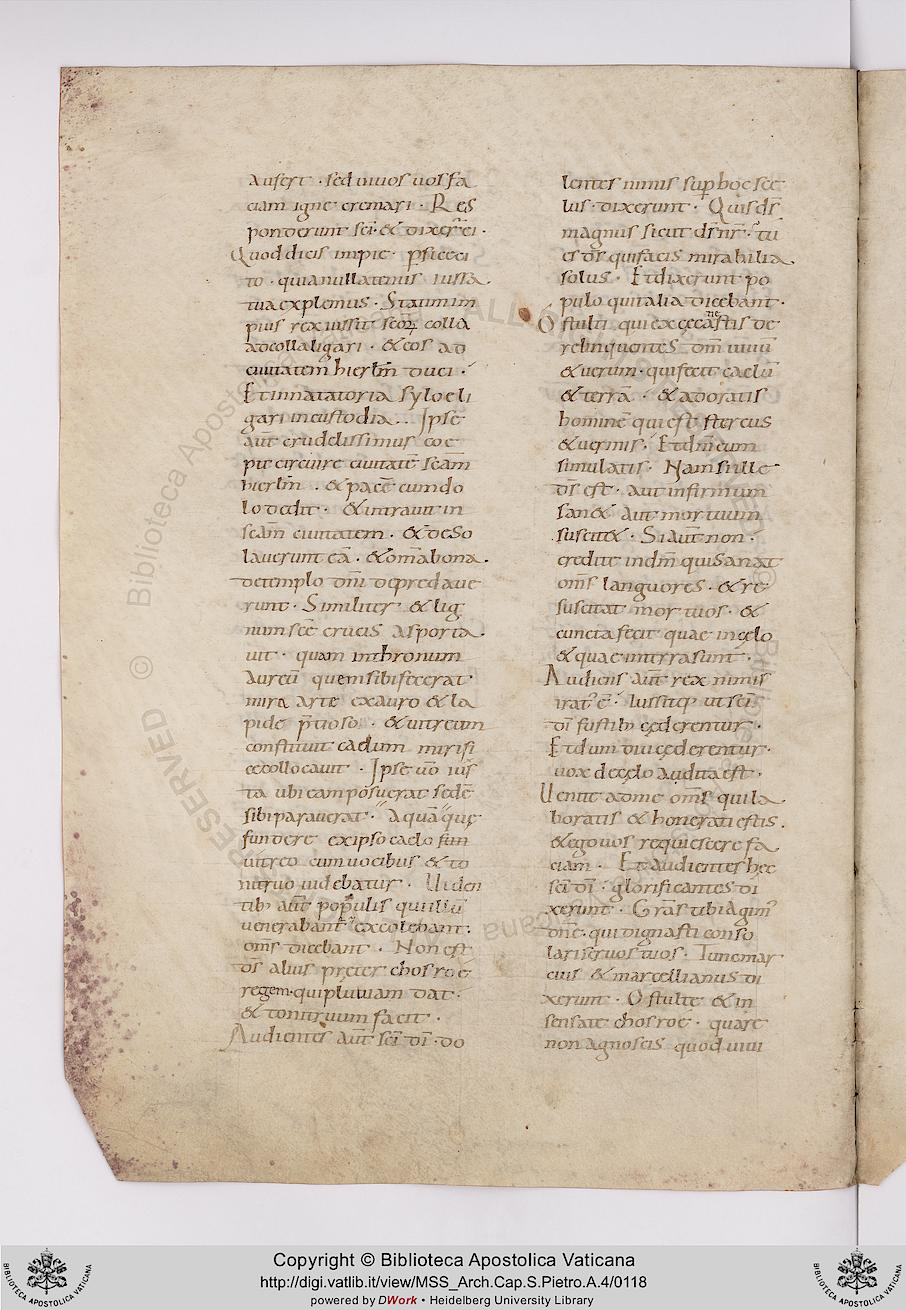 aufert · sed vivos vos fa
ciam igne cremari · Res
ponderunt sc̄i · & dixer̄ ei ·
Quod dicis impie · ꝑfice ci
to · quia nullatenus iussa
tua explemus · Statim im
pius rex iussit scōꝝ colla
ad colla ligari · & eos ad
civitatem hierlm̄ duci ·
Et in natatoria syloe li
gari in custodia · Ipse
aut̄ crudelissimus coe
pit circuire civitatē scām
hierlm̄ · & pacē cum do
lo dedit · & intravit in
scām civitatem · & deso
laverunt eā · & om̄a bona ·
de templo dn̄i depredave
runt · Similiter & lig
num scē crucis asporta
vit · quam in thronum
aureū quem sibi fecerat ·
mira arte ex auro & la
pide p̄tioso · & vitreum
constituit caelum mirifi
ce collocavit · Ipse v̄o ius
ta ubi eam posuerat sedē
sibi paraverat · Aquā quę
fundere ex ipso caelo
vitreo cum vocibus & to
nitruo videbatur · Viden
tib; aut̄ populis qui illū
venerabant & excolebant ·
om̄s dicebant · Non est
d̄s alius pręter chosroe
regem · qui pluviam dat ·
& tonitruum facit ·
Audientes aut̄ sc̄i dī · do
lentes nimis suꝑ hoc sce
lus · dixerunt · Quis d̄s
magnus sicut d̄s nr̄ · tu
es d̄s qui facis mirabilia
solus · Et dixerunt po
pulo qui talia dicebant ·
O stulti qui ex cęcitatis de
relinquentes dm̄ vivū
& verum · qui fecit caelū
& terrā · & adoratis
hominē qui est stercus
& vermis · Et dm̄ eum
simulatis · Nam si ille
d̄s est · aut infirmum
san& aut mortuum
suscit& · Si aut̄ non ·
credite in dm̄ qui sanat
om̄s languores · & re
suscitat mortuos · &
cuncta fecit quae in cęlo
& quae in terra sunt ·
Audiens aut̄ rex nimis
irat' ē · Iussitq; ut sc̄i
dī fustib; cęderentur ·
Et dum diu cęderentur ·
vox de cęlo audita est ·
Venite ad me om̄s qui la
boratis & honerati estis ·
& ego vos requiescere fa
ciam · Et audientes hęc
sc̄i dī · glorificantes di
xerunt · Grās tibi agim'
dn̄e · qui dignasti conso
lari servos tuos · Tunc mar
cus & marcellianus di
xerunt · O stulte & in
sensate chosroe · quare
non agnoscis quod vivi
Copyright © Biblioteca Apostolica Vaticana
http://digi.vatlib.it/view/MSS_Arch.Cap.S.Pietro.A.4/0118
powered by DWork • Heidelberg University Library